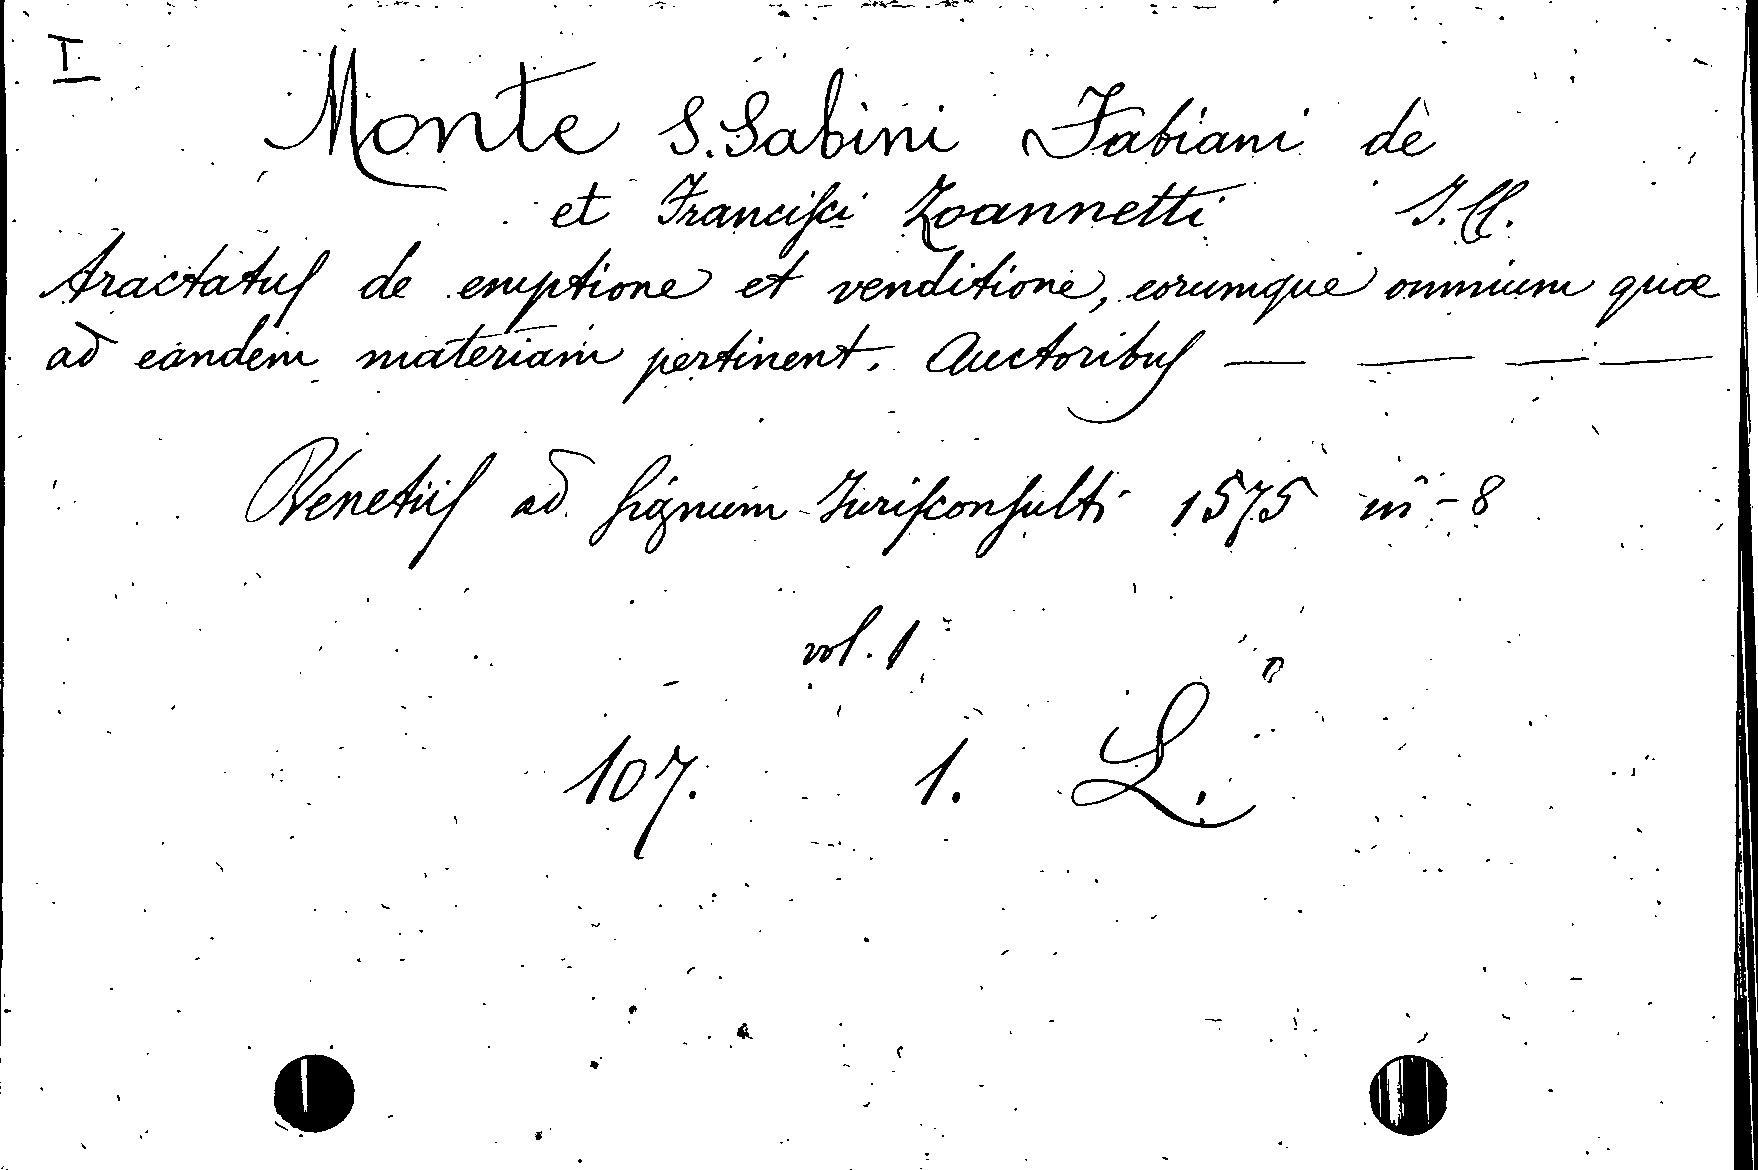 I
Monte S. Sabini Fabiani de
et Franciſci Zoannetti J. CC.
tractatuſ de emptione et venditione, eorumque omnium quæ
ad eandem materiam pertinent. Auctoribuſ — — — —
Venetiiſ ad ſignum Juriſconſulti 1575 in-8
vol. 1
107. 1. L.